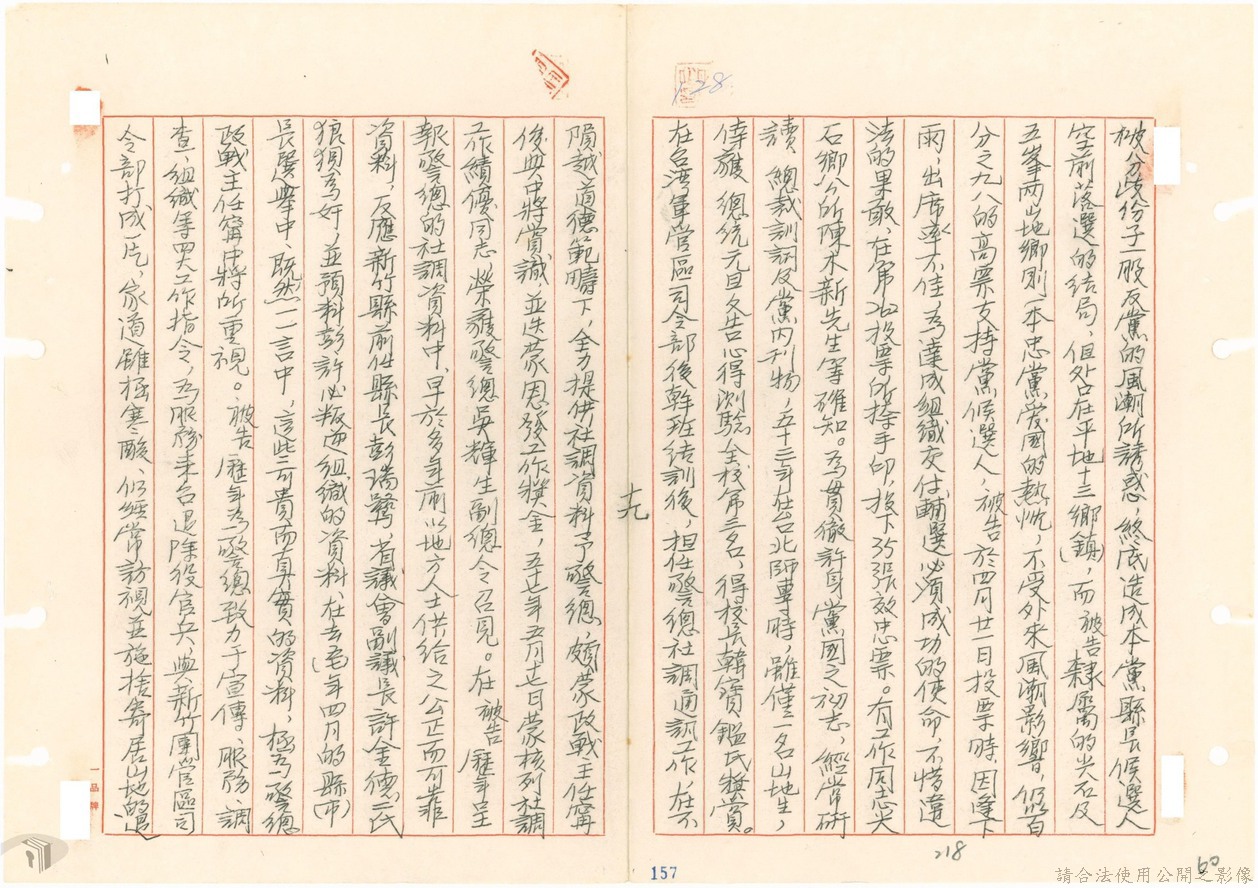 被分歧份子一股反黨的風潮所誘惑，終底造成本黨縣長候選人
空前落選的結局，但处只在平地十三鄉(鎮)，而被告隸屬的尖石及
五峯兩山地鄉則一本忠黨愛國的熱忱，不受外來風潮影響，仍以百
分之九八的高票支持黨候選人，被告於四月廿一日投票時，因逢下
雨，出席率不佳，為達成組織交付輔選必須成功的使命，不惜違
法的果敢，在第262投票所搽手印，投下35張效忠票。有工作同志尖
石鄉公所陳木新先生等確知。為貫徹許身黨國之初志，經常研
讀 總裁訓詞及黨內刊物，五十三年在台北師專時，雖僅一名山地生，
倖獲 總統元旦文告心得測驗全校第三名，得校長韓寶鑑氏獎賞。
在台灣軍管區司令部後幹班結訓後，担任警總社調通訊工作，在不
隕越道德範疇下，全力提供社調資料予警總，頗蒙政戰主任甯
俊興中將賞識，並迭蒙恩發工作獎金，五十七年五月十七日蒙核列社調
工作績優同志，榮獲警總吳輝生副總令召見。在被告歷年呈
報警總的社調資料中，早於多年前以地方人士供給之公正而可靠
資料，反應新竹縣前任縣長彭瑞鷺，省議會副議長許金德二氏
狼狽為奸，並預料彭許必叛逆組織的資料，在去(57)年四月的縣(市)
長選舉中，既然一一言中，這些可貴而真實的資料，極為警總
政戰主任甯中將所重視。被告歷年為警總致力于宣傳。服務 調
查、組織等四大工作指令，為服務來台退除役官兵，與新竹團管區司
令部打成一片，家道雖極寒酸、仍經常訪視並施捨寄居山地的退
十九
128
218
60
157
一品牌
請合法使用公開之影像